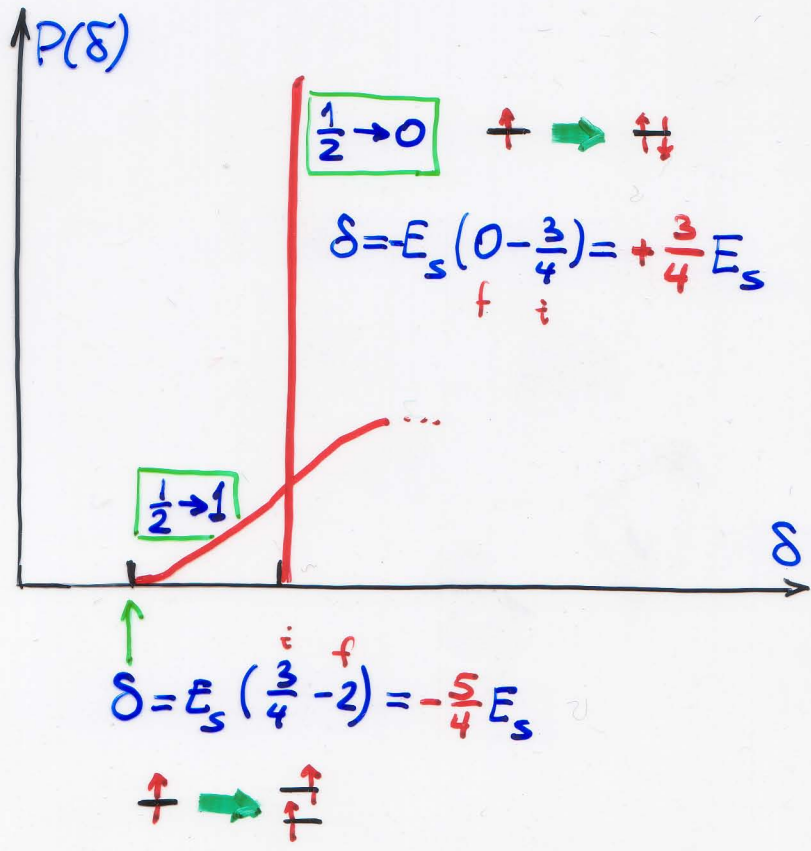 P(δ)
1/2 → 0
δ = -E_s (0 - 3/4) = + 3/4 E_s
f i
...
1/2 → 1
δ
i f
δ = E_s (3/4 - 2) = - 5/4 E_s